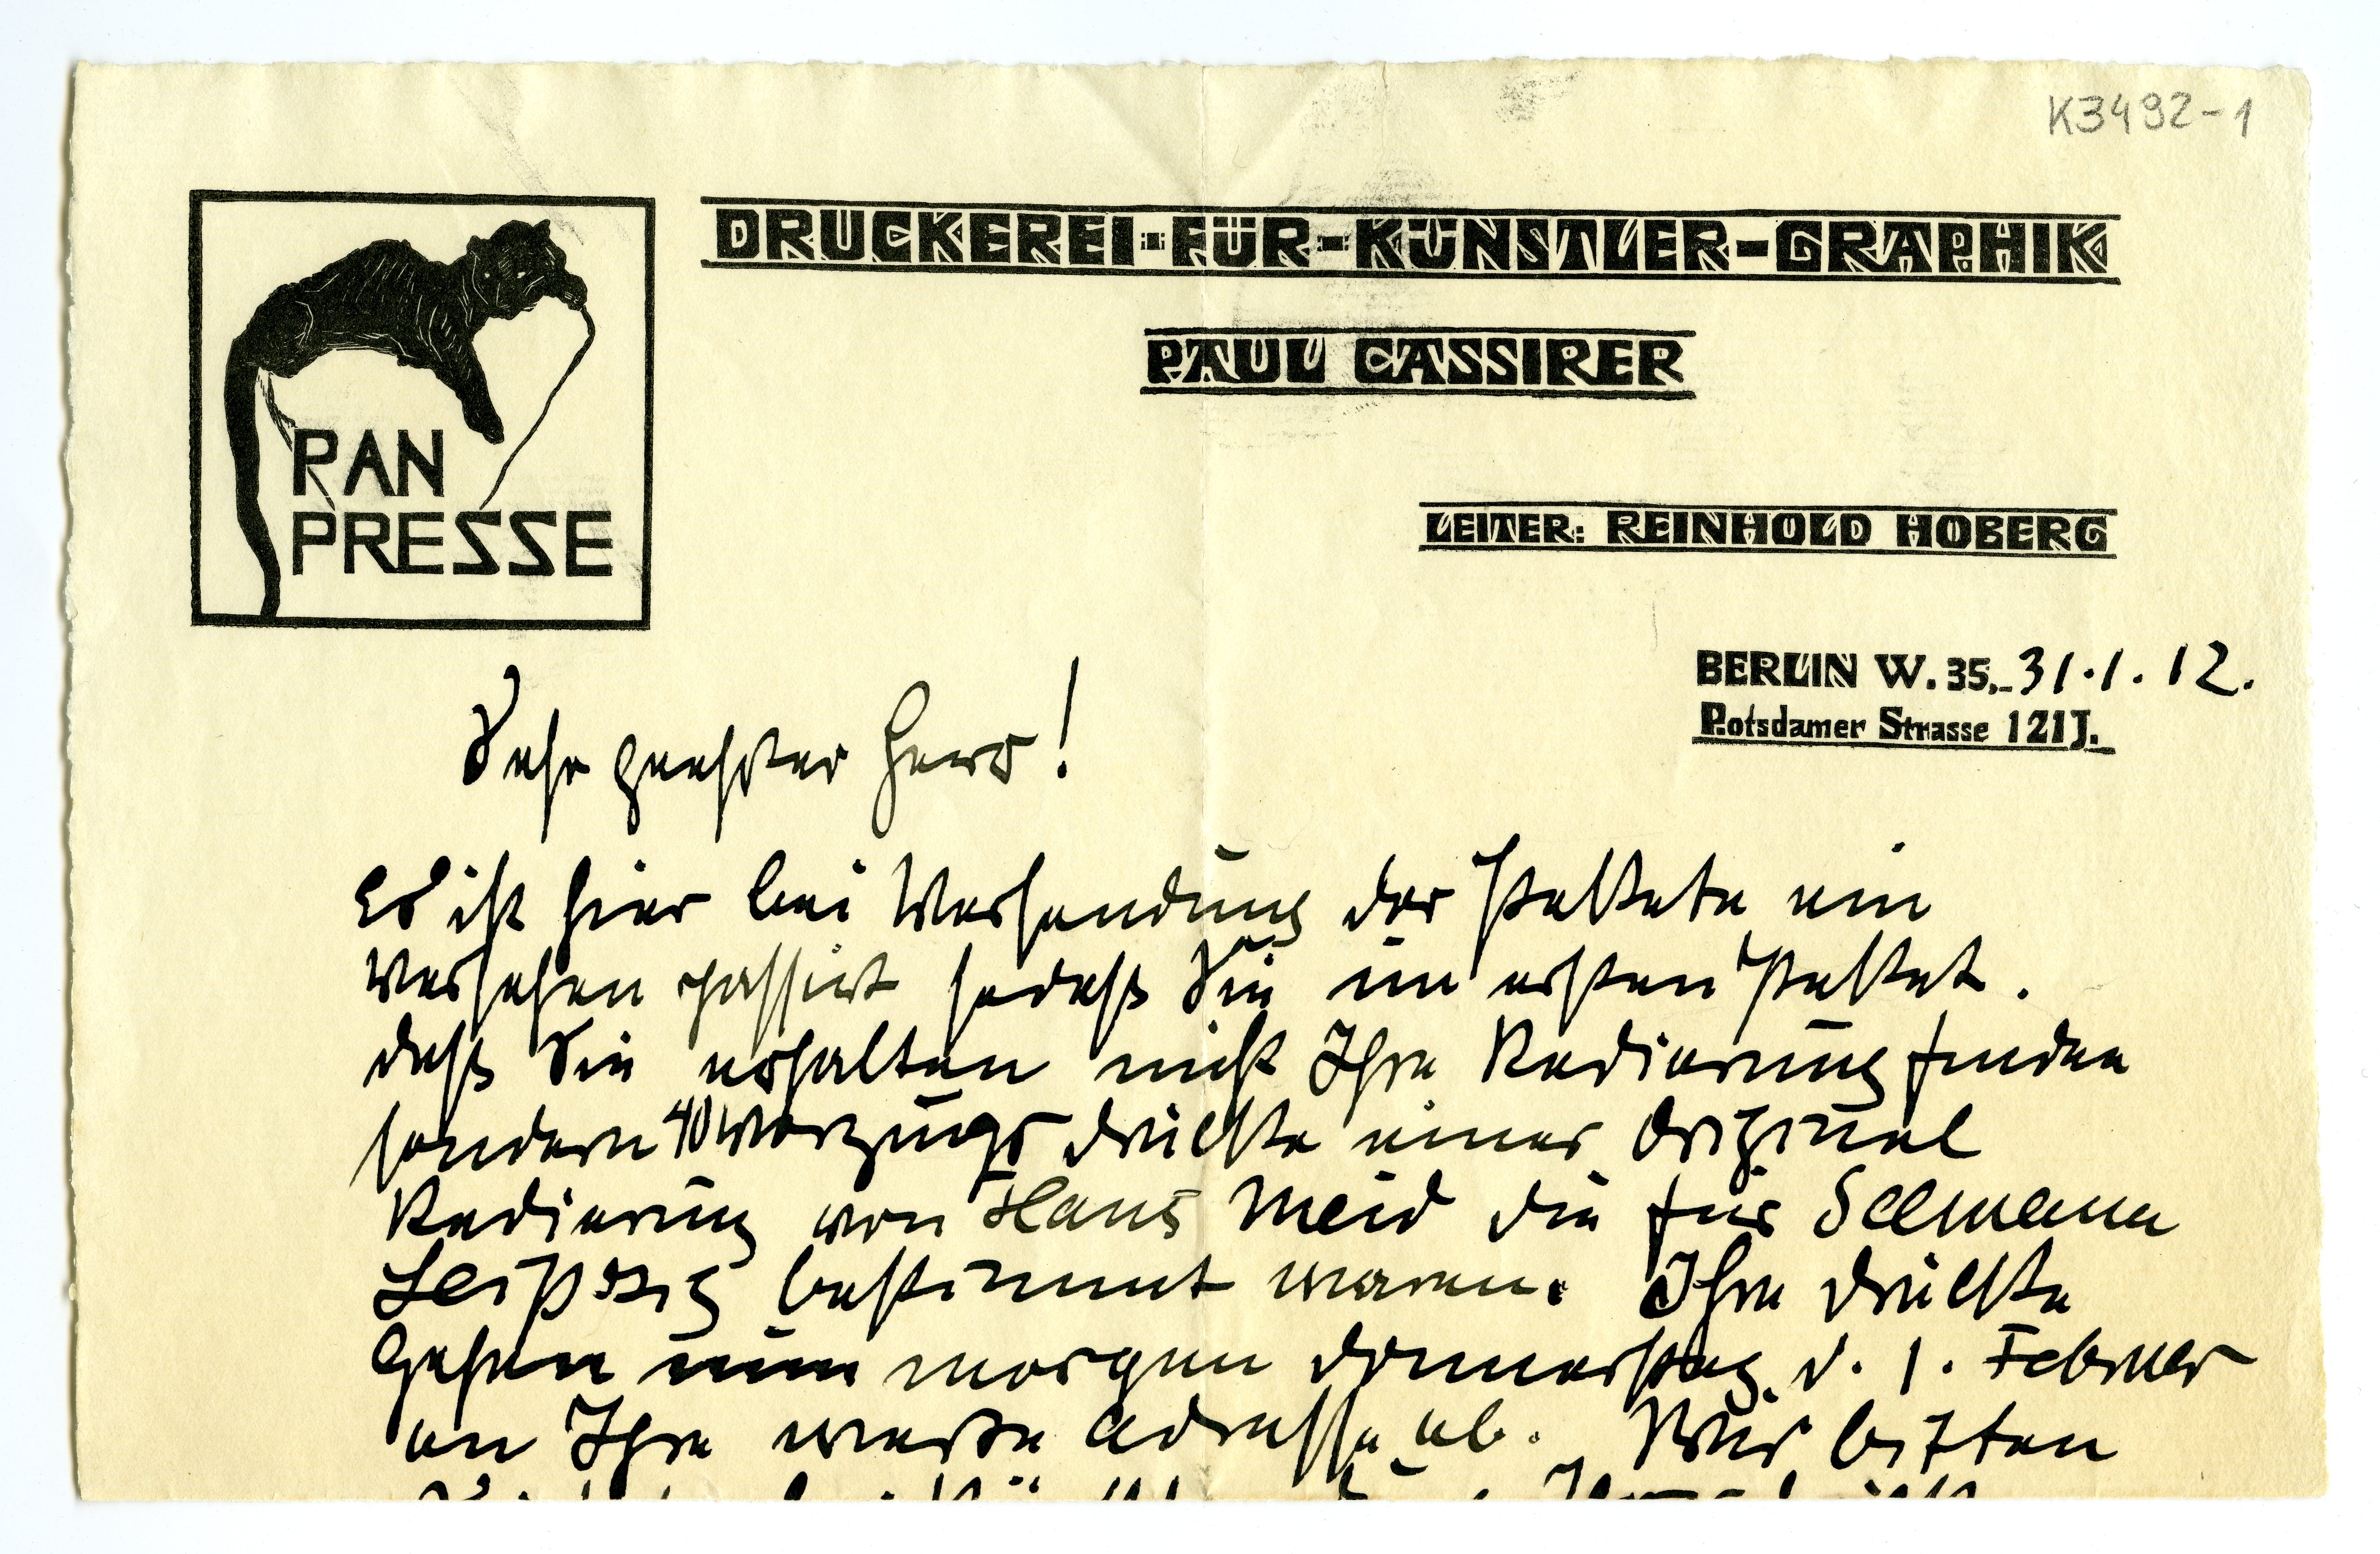 K3492-1
DRUCKEREI-FÜR-KÜNSTLER-GRAPHIK
PAUL CASSIRER
PAN
PRESSE
LEITER: REINHOLD HOBERG
BERLIN W. 35, 31.1.12.
Potsdamer Strasse 121J.
Sehr geehrter Herr!
Es ist hier bei Versendung der Packete ein
Versehen passirt sodass Sie im ersten Packet.
dass Sie erhalten nicht Ihre Radierung finden
sondern 40 Vorzugs drucke einer Original
Radierung von Hans Meid die für Seemann
Leipzig bestimmt waren. Ihre Drucke
gehen nun morgen Donnerstag d. 1. Februar
an Ihre werte Adresse ab. Wir bitten